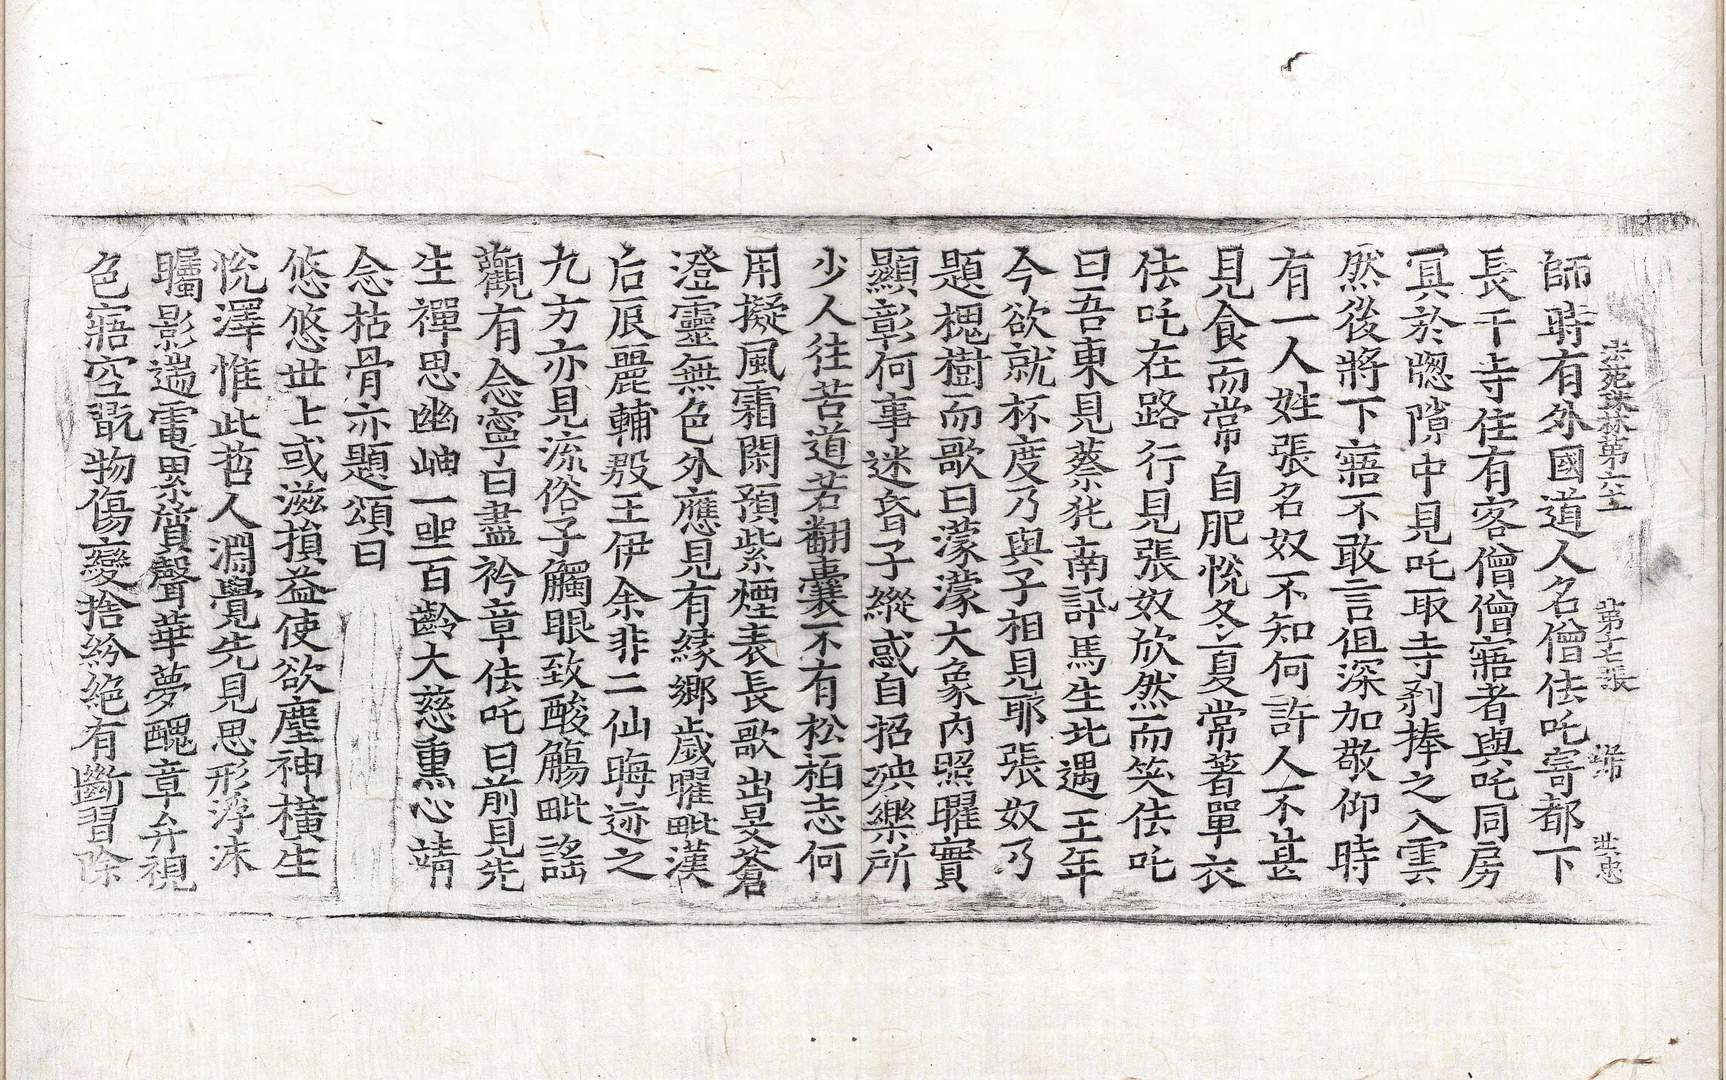 法苑珠林第六十一　第十七張　歸　世忠
師時有外國道人名僧佉吒寄都下
長干寺住有客僧僧寤者與吒同房
冥於牕隙中見吒取寺刹捧之入雲
然後將下寤不敢言但深加敬仰時
有一人姓張名奴不知何許人不甚
見食而常自肥悅冬夏常著單衣
佉吒在路行見張奴欣然而笑佉吒
曰吾東見蔡㹠南訊馬生北遇王年
今欲就杯度乃與子相見耶張奴乃
題槐樹而歌曰濛濛大象內照曜實
顯彰何事迷昏子縱惑自招殃樂所
少人往苦道若翻囊不有松栢志何
用擬風霜閑預紫煙表長歌出旻蒼
澄靈無色外應見有緣鄉歲曜毗漢
后辰麗輔殷王伊余非二仙晦迹之
九方亦見流俗子觸眼致酸觴毗謠
觀有念寧曰盡衿章佉吒曰前見先
生禪思幽岫一坐百齡大慈熏心靖
念枯骨亦題頌曰
悠悠世上或滋損益使欲塵神橫生
悅澤惟此哲人淵覺先見思形浮沫
矚影遄電累躓聲華夢醜章弁視
色寤空翫物傷變捨紛絕有斷習除